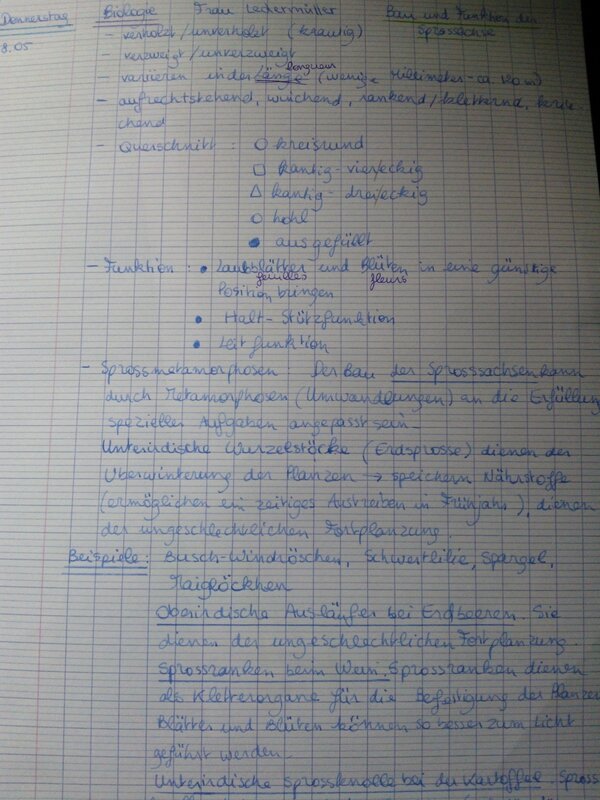 Donnerstag Biologie Frau Ledermüller Bau und Funktion der
8.05 - verholzt/unverholzt (krautig) Sprossachse
- verzweigt/unverzweigt
longueur
- variieren in der Länge (wenige Millimeter - ca. 120 m)
- aufrechtstehend, windend, rankend/kletternd, krie-
chend
- Querschnitt : ○ kreisrund
□ kantig - vier/eckig
△ kantig - drei/eckig
○ hohl
● ausgefüllt
- Funktion : • Laubblätter und Blüten in eine günstige
feuilles fleurs
Position bringen
• Halt- Stützfunktion
• Leitfunktion
- Sprossmetamorphosen : Der Bau der Sprosssachsen kann
durch Metamorphosen (Umwandlungen) an die Erfüllung
spezieller Aufgaben angepasst sein.
Unterirdische Wurzelstöcke (Erdsprosse) dienen der
Überwinterung der Planzen → speichern Nährstoffe
(ermöglichen ein zeitiges Austreiben in Frühjahr), dienen
der ungeschlechtlichen Fortplanzung.
Beispiele : Busch-Windröschen, Schwertlilie, Spargel,
Maiglöckchen
Oberirdische Ausläufer bei Erdbeeren. Sie
dienen der ungeschlechtlichen Fortplanzung.
Sprossranken beim Wein. Sprossranken dienen
als Kletterorgane für die Befestigung der Planzen
Blätter und Blüten können so besser zum Licht
geführt werden.
Unterirdische Sprossknolle bei der Kartoffel. Spross